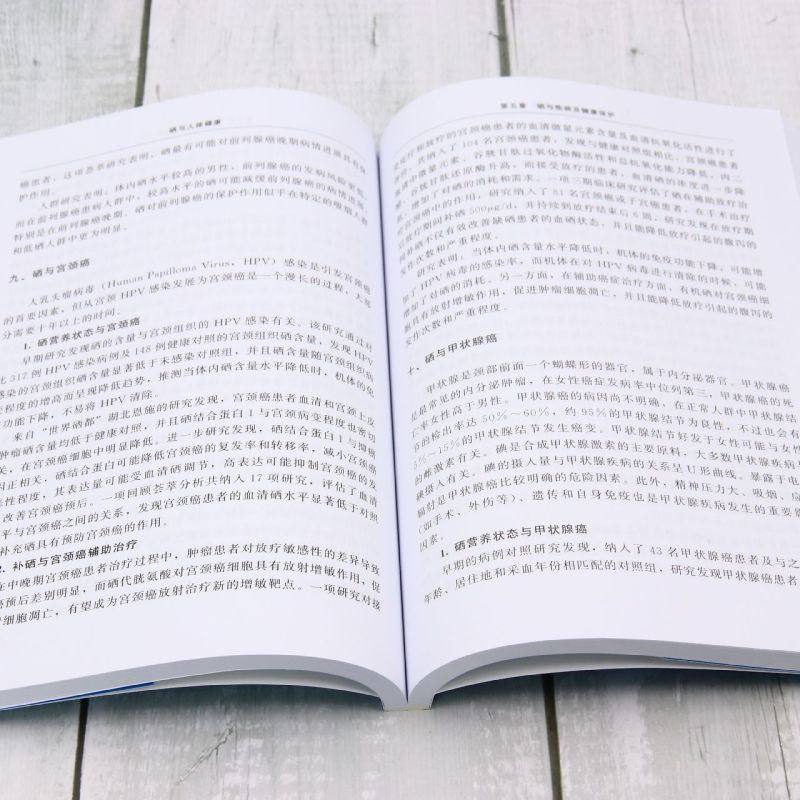 硒与人体健康
癌患者，这项荟萃研究表明，硒最有可能对前列腺癌晚期病情进展具有保
护作用。
人群研究表明，体内硒水平较高的男性，前列腺癌的发病风险更低，
而在前列腺癌患病人群中，较高水平的硒可能减缓前列腺癌的病情进展，
特别是在前列腺癌晚期。硒对前列腺癌的保护作用似乎在特定的吸烟人群
和低硒人群中更为明显。
九、硒与宫颈癌
人乳头瘤病毒（Human Papilloma Virus，HPV）感染是引发宫颈癌
的首要因素，但从宫颈 HPV 感染发展为宫颈癌是一个漫长的过程，大部
分需要十年以上的时间。
1. 硒营养状态与宫颈癌
早期研究发现硒的含量与宫颈组织的 HPV 感染有关。该研究通过对
比 317 例 HPV 感染病例及 148 例健康对照的宫颈组织硒含量，发现 HPV
感染的宫颈组织硒含量显著低于未感染对照组，并且硒含量随宫颈组织病
变程度的增高而呈现降低趋势，推测当体内硒含量水平降低时，机体的免
功能下降，不易将 HPV 清除。
来自“世界硒都”湖北恩施的研究发现，宫颈癌患者血清和宫颈上皮
肿瘤硒含量均低于健康对照，并且硒结合蛋白 1 与宫颈病变程度也密切
关，在宫颈癌细胞中明显降低。进一步研究发现，硒结合蛋白 1 与抑癌
因正相关，硒结合蛋白可能降低宫颈癌的复发率和转移率，减小宫颈癌
性程度，其表达量可能受血清硒调节，高表达可能抑制宫颈癌的发
改善宫颈癌预后。一项回顾荟萃分析共纳入 17 项研究，评估了血清
平与宫颈癌之间的关系，发现宫颈癌患者的血清硒水平显著低于对照
补充硒具有预防宫颈癌的作用。
2. 补硒与宫颈癌辅助治疗
在中晚期宫颈癌患者治疗过程中，肿瘤患者对放疗敏感性的差异导致
预后差别明显，而硒代胱氨酸对宫颈癌细胞具有放射增敏作用，促
细胞凋亡，有望成为宫颈癌放射治疗新的增敏靶点。一项研究对接
第五章 硒与疾病及健康保护
放疗的宫颈癌患者的血清微量元素含量及血清抗氧化活性进行了
共纳入了 104 名宫颈癌患者，发现与健康对照组相比，宫颈癌患者
中微量元素、谷胱甘肽过氧化物酶活性和总抗氧化能力降低，丙二
谷胱甘肽还原酶升高，而接受放疗的患者，血清硒的浓度进一步降
增加了对硒的消耗和需求。一项三期临床研究评估了硒在辅助放疗治
宫颈癌中的作用，研究纳入了 81 名宫颈癌或子宫癌患者，在手术治疗
放疗期间补硒 500μg/d，并持续到放疗结束后 6 周，研究发现在放疗期
补硒不仅有效改善缺硒患者的血硒状态，并且能降低放疗引起的腹泻的
发作次数和严重程度。
研究表明，当体内硒含量水平降低时，机体的免疫功能下降，可能增
加了 HPV 病毒的感染率，而机体在对 HPV 病毒进行清除的时候，可能
增加了对硒的消耗。另一方面，在辅助癌症治疗方面，有机硒对宫颈癌细
胞具有放射增敏作用，促进肿瘤细胞凋亡，并且能降低放疗引起的腹泻的
发作次数和严重程度。
十、硒与甲状腺癌
甲状腺是颈部前面一个蝴蝶形的器官，属于内分泌器官。甲状腺癌
是最常见的内分泌肿瘤，在女性癌症发病率中位列第三，甲状腺癌的死
亡率女性高于男性。甲状腺癌的病因尚不明确，在正常人群中甲状腺结
节的检出率达 50%～60%，约 95%的甲状腺结节为良性，不过也会有
5%～15%的甲状腺结节发生癌变。甲状腺结节好发于女性可能与女性
的雌激素有关。碘是合成甲状腺激素的主要原料，大多数甲状腺疾病与
碘摄入有关。碘的摄入量与甲状腺疾病的关系呈 U 形曲线。暴露于电
辐射是甲状腺癌比较明确的危险因素。此外，精神压力大、吸烟、应
（如手术、外伤等）、遗传和自身免疫也是甲状腺疾病发生的重要影
因素。
1. 硒营养状态与甲状腺癌
早期的病例对照研究发现，纳入了 43 名甲状腺癌患者及与之
年龄、居住地和采血年份相匹配的对照组，研究发现甲状腺癌患者